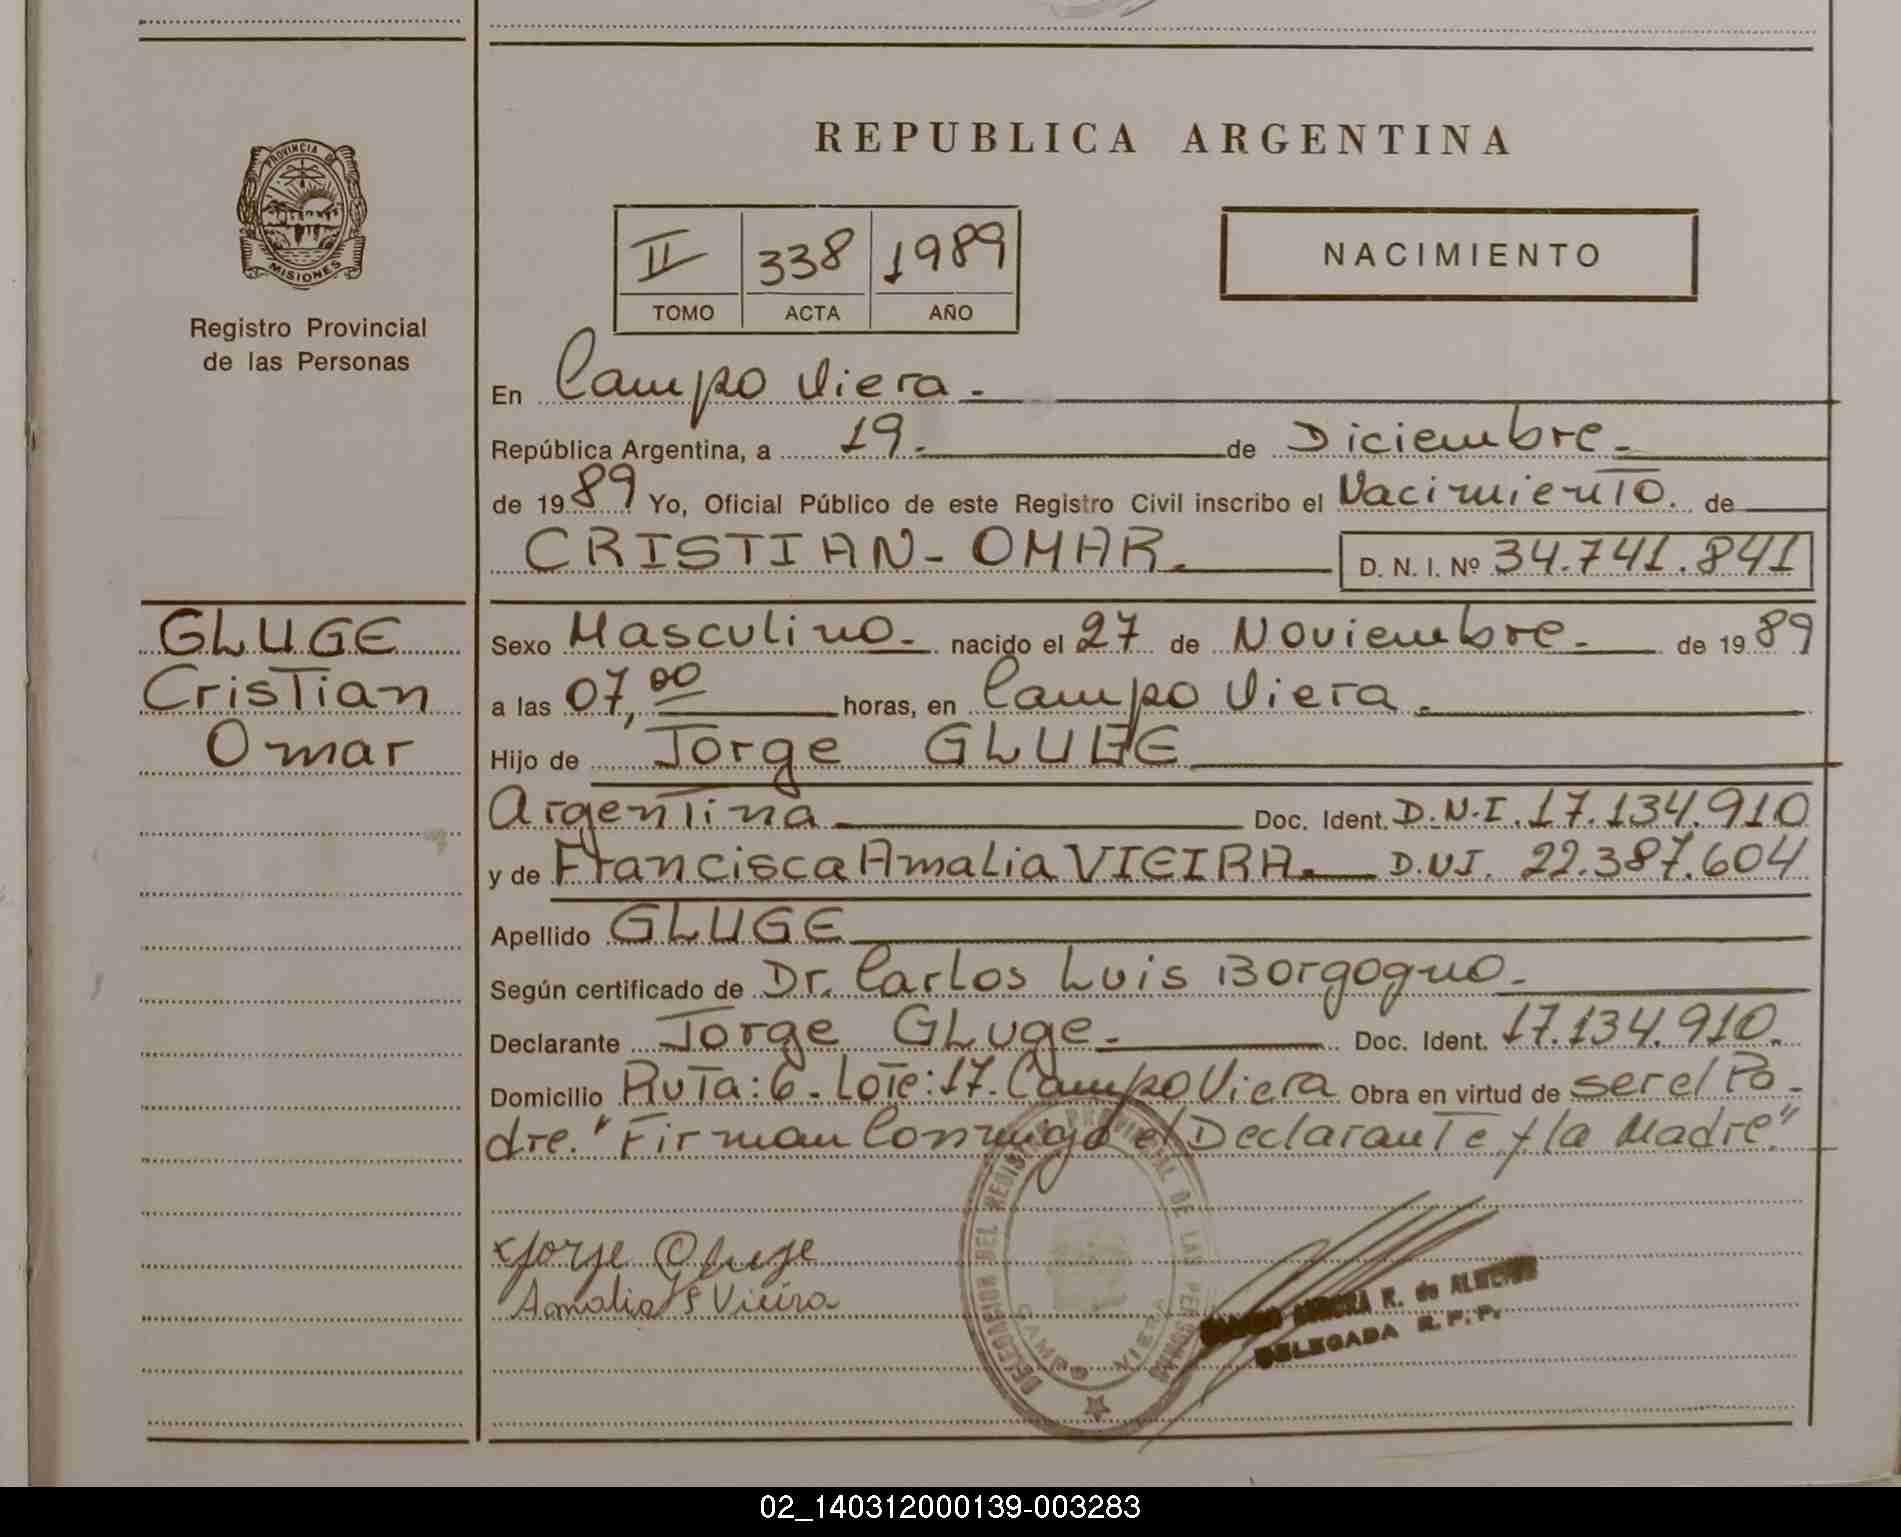 REPUBLICA ARGENTINA
PROVINCIA DE
MISIONES
Registro Provincial
de las Personas
II 338 1989
TOMO ACTA AÑO
NACIMIENTO
En Campo Viera.-
República Argentina, a 19.- de Diciembre.-
de 1989 Yo, Oficial Público de este Registro Civil inscribo el Nacimiento. de
CRISTIAN-OMAR.- D. N. I. Nº 34.741.841
GLUGE
Cristian
Omar
Sexo Masculino.- nacido el 27 de Noviembre.- de 1989
a las 07,00 horas, en Campo Viera.-
Hijo de Jorge GLUGE
Argentina Doc. Ident. D.N.I. 17.134.910
y de Francisca Amalia VIEIRA.- D.N.I. 22.387.604
Apellido GLUGE
Según certificado de Dr. Carlos Luis Borgogno.-
Declarante Jorge Gluge.- Doc. Ident. 17.134.910.
Domicilio Ruta: 6. Lote: 17. Campo Viera Obra en virtud de ser el Pa-
dre. "Firman Conmigo el Declarante y la Madre."
Jorge Gluge
Amalia F Vieira
DELEGACION DEL REGISTRO PROVINCIAL DE LAS PERSONAS
CAMPO VIERA
R. de ALMEIDA
DELEGADA R.P.P.
02_140312000139-003283